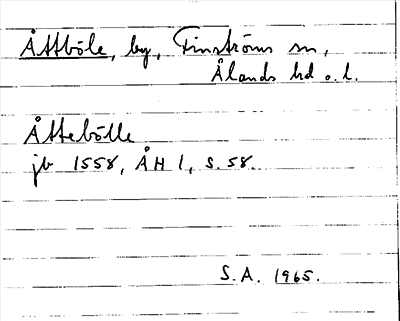 Åttböle, by, Finströms sn,
Ålands hd o. l.
Åttebölle
jb 1558, ÅH 1, S. 58.
S.A. 1965.